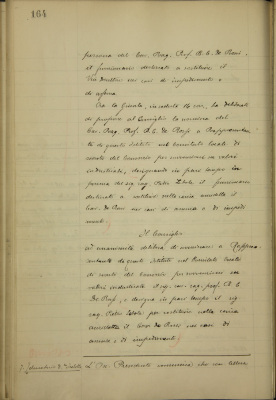 164
persona del Cav. Rag. Prof. R. E. De
il funzionario destinato a sostituire il
nei casi di impedimento o
di
La Giunta, in seduta 16 corr. ha deliberato
di proporre al Consiglio la nomina del
Cav. Rag. Prof. R. E. De a Rappresentan
te di questo Istituto nel Comitato locale di
sconto del Consorzio per sovvenzioni su valori
industriali, designando in pari tempo in
persona del sig. rag. Pietro il funzionario
destinato a sostituire nella carica anzidetta il
Cav. De nei casi di assenza o di impedi
mento.
Il Consiglio
ad unanimità delibera di nominare a Rappre
sentante di questo Istituto nel Comitato locale
di sconto del Consorzio per sovvenzioni su
valori industriali il sig. cav. rag. prof. R. E.
De e designa in pari tempo il sig.
rag. Pietro per sostituire nella carica
anzidetta il Cav. De nei casi di
assenza o di impedimento.
Il Sig. Presidente comunica che con lettera